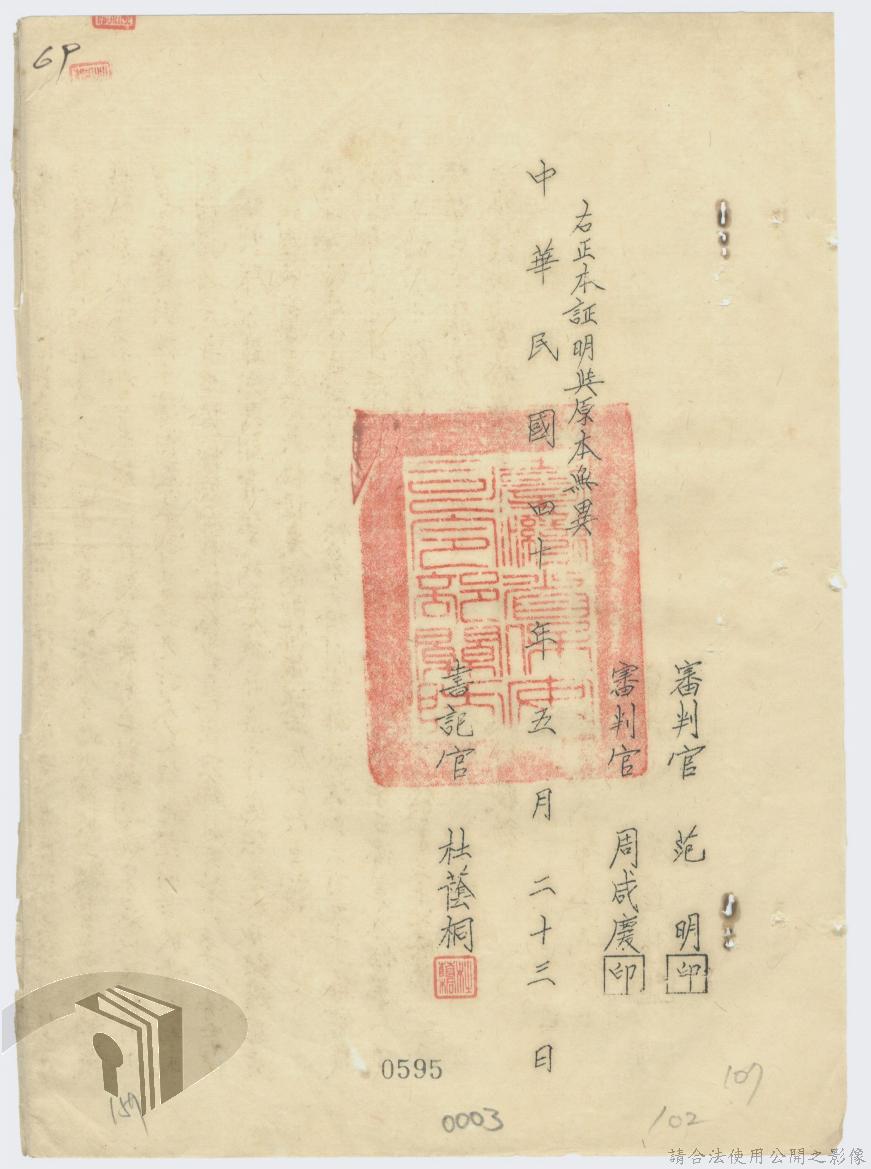 審判官 范明 印
審判官 周咸慶 印
右正本証明與原本無異
中華民國四十年五月二十三日
書記官 杜蔭桐
6P
0595
0003
159
102
107
請合法使用公開之影像